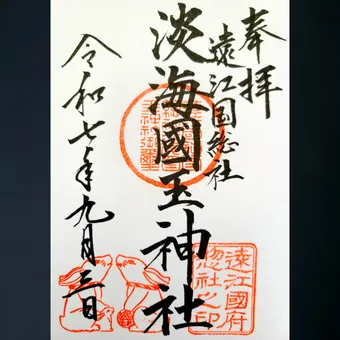 奉拝
遠江国総社
淡海國玉神社
令和七年九月三日
遠江國府
惣社之印